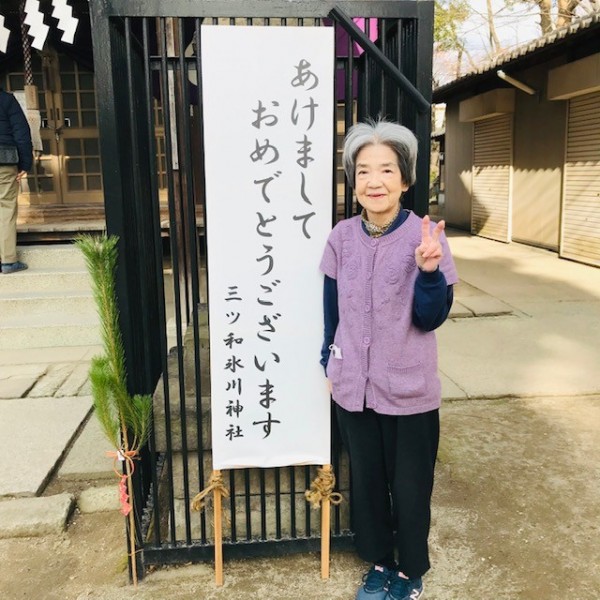 あけまして
おめでとうございます
三ツ和氷川神社